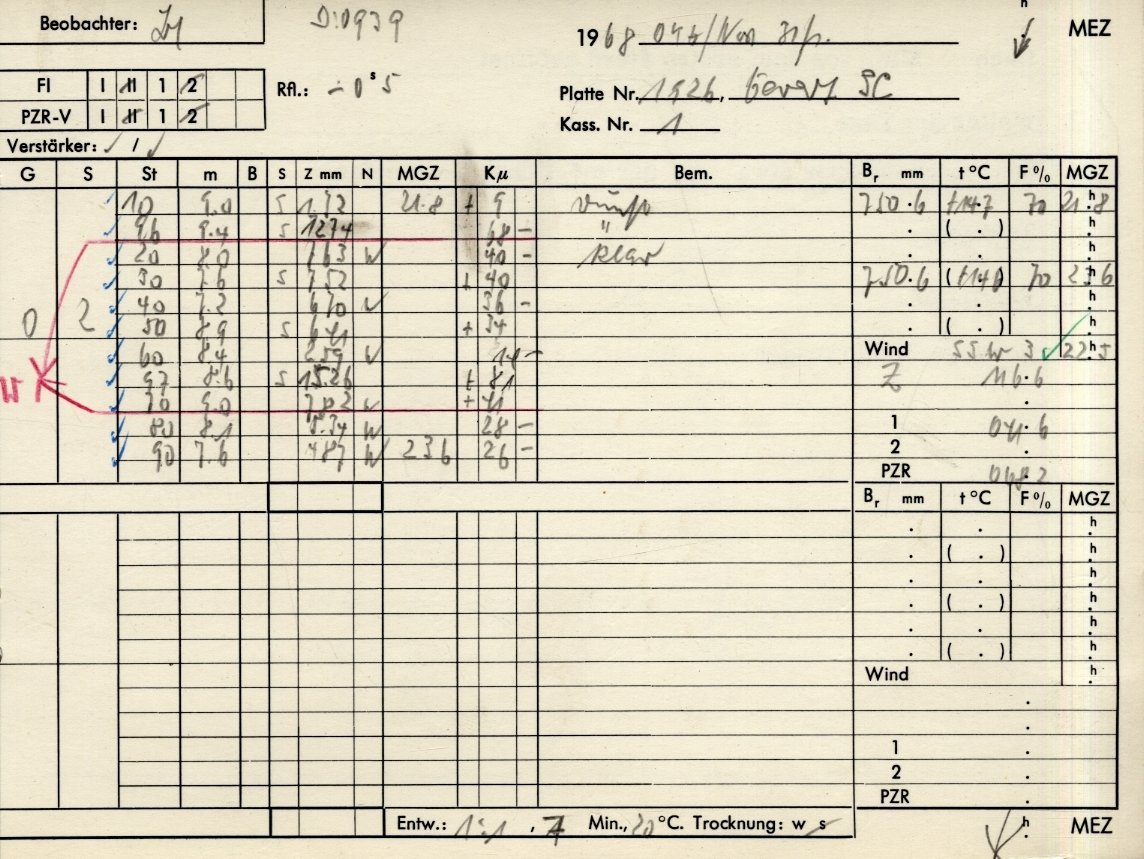 Beobachter:
D:0939
1968
h MEZ
FI I II 1 2
Rfl.: - 0 s 5
Platte Nr. 1926,
PZR-V I II 1 2
Kass. Nr. 1
Verstärker: /
G S St m B S Z mm N MGZ Kμ Bem. Br mm t °C F % MGZ
10 9.0 S 1.72 21.8 + 9 750.6 +14.7 70 21.8 h
96 9.4 S 1274 68 - " . ( . )
20 8.0 763 W 40 - klar . . h
30 7.6 S 752 + 40 750.6 70 h
40 7.2 670 W 36 - . . h
0 2 50 8.9 S 641 + 34 . ( . ) h
60 8.4 259 W 14 - Wind SSW 3 22.5 h
W 97 8.6 S 15.26 ± 81 Z 116.6
70 9.0 702 W + 41 .
80 8.1 5.34 W 28 - 1 041.6
90 7.6 487 W 23 6 26 - 2 .
PZR
Br mm t °C F % MGZ
. . h
. ( . ) h
. . h
. ( . ) h
. . h
. ( . ) h
Wind h
.
.
1 .
2 .
PZR .
Entw.: 1:1, 7 Min., 20 °C. Trocknung: w s
h MEZ